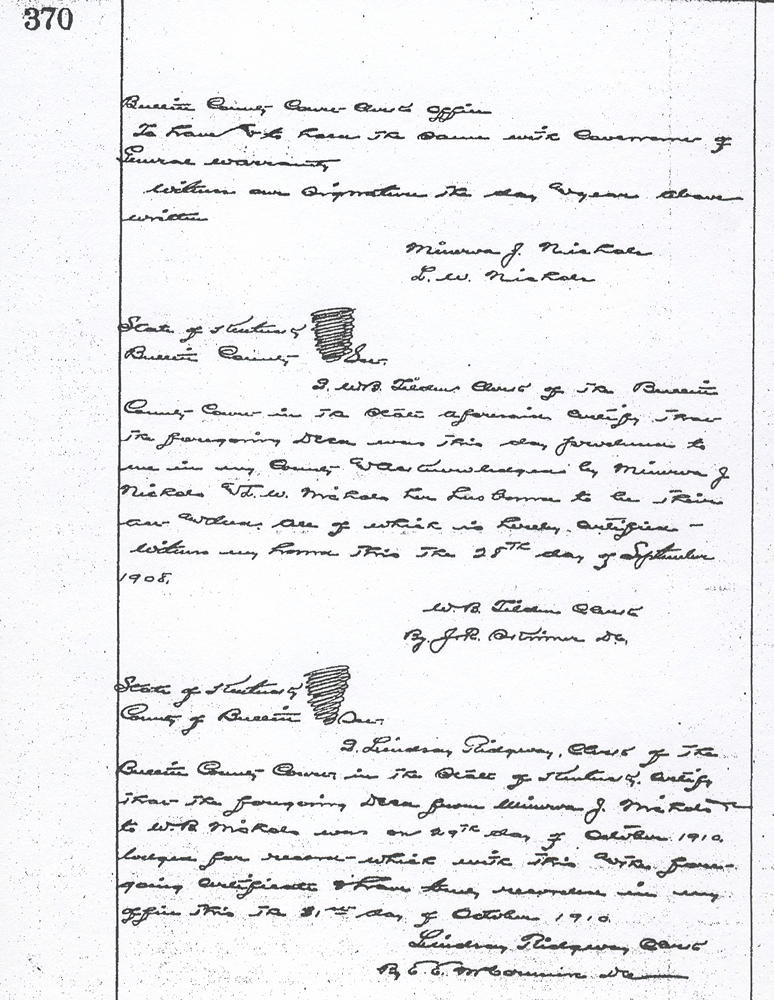 370
Bullitt County Court Clerks office
To have & to hold the same with Covenant of
General warranty
Witness our signature the day & year above
written
Minerva J. Nichols
L. W. Nichols
State of Kentucky
Bullitt County Sct.
I, W.B. Tilden Clerk of the Bullitt
County Court in the State aforesaid Certify that
the foregoing Deed was this day produced to
me in my County & acknowledged by Minerva J
Nichols & L. W. Nichols her husband to be their
act & deed. All of which is hereby certified –
Witness my hand this the 28th day of September
1908.
W. B. Tilden Clerk
By, J.R. DC,
State of Kentucky
County of Bullitt Sct.
I, Lindsay Ridgway, Clerk of the
Bullitt County Court, in the State of Kentucky, certify
that the foregoing Deed from Minerva J. Nichols
to W.B. Nichols was on 29th day of October 1910,
lodged for record – which with this & the fore-
going certificate I have truly recorded in my
office this the 31st day of October 1910
Lindsay Ridgway Clerk
By C. C. McCormick DC